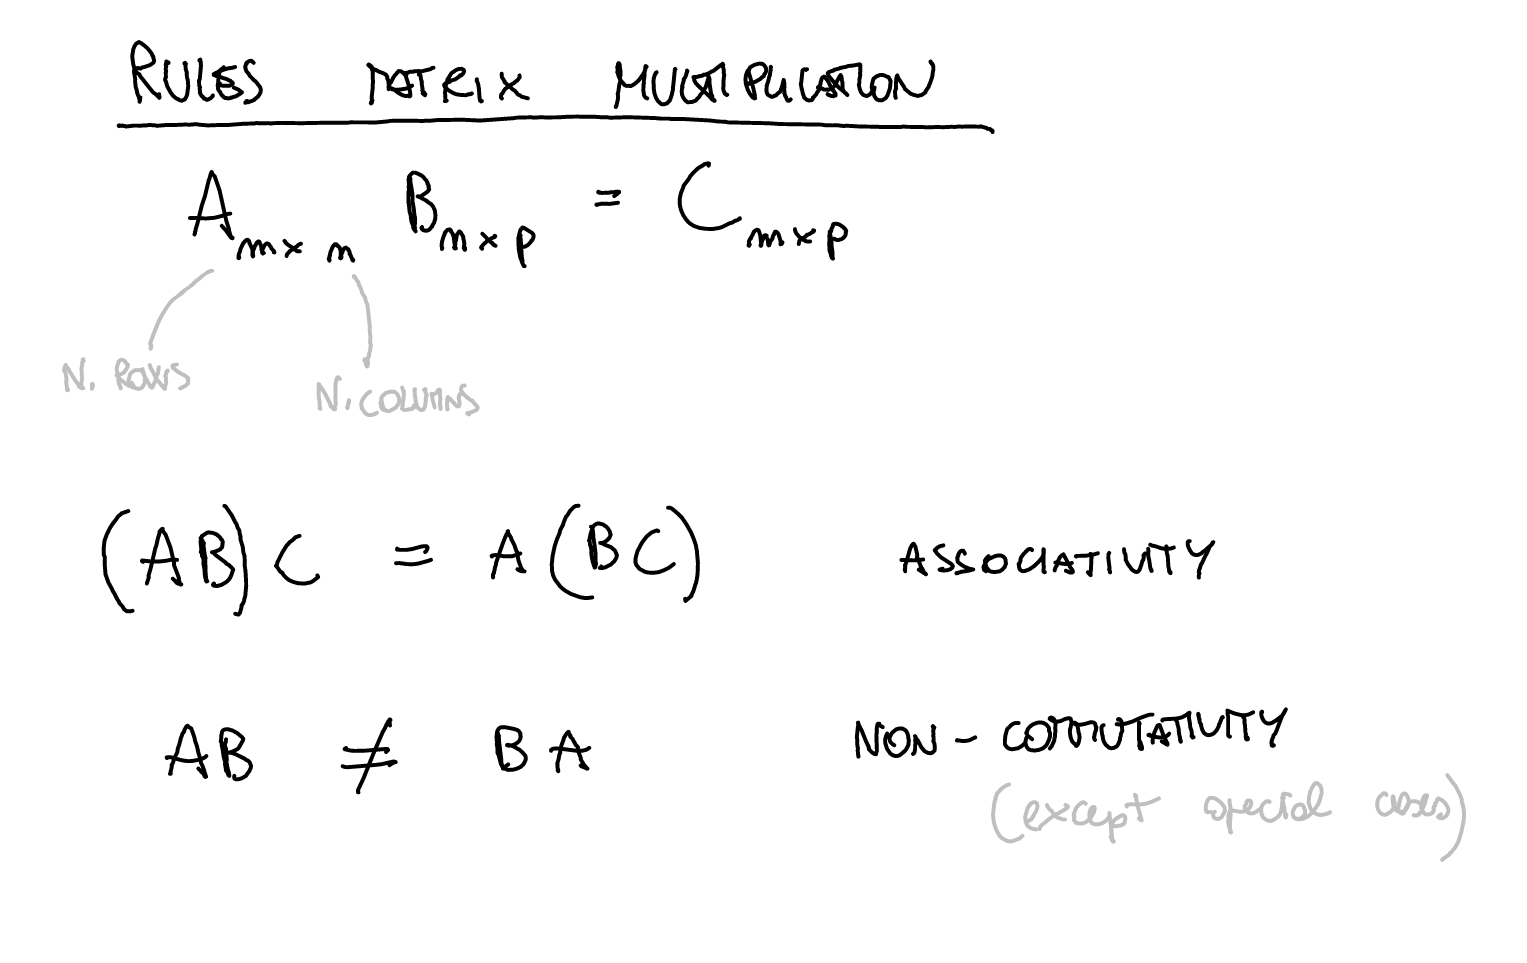 RULES MATRIX MULTIPLICATION
A m×n B n×p = C m×p
N. ROWS
N. COLUMNS
(AB)C = A(BC) ASSOCIATIVITY
AB ≠ BA NON-COMMUTATIVITY
(except special cases)